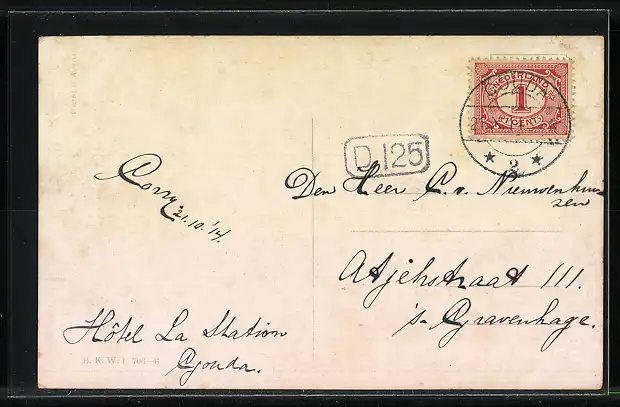 NEDERLAND
1
CENT
GOUDA
2
D 125
Corry
21.10.'14.
Den Heer C. v. Nieuwenhui
zen
Atjehstraat 111.
's-Gravenhage.
Hôtel La Station
Gouda.
B. K. W. I 706-6